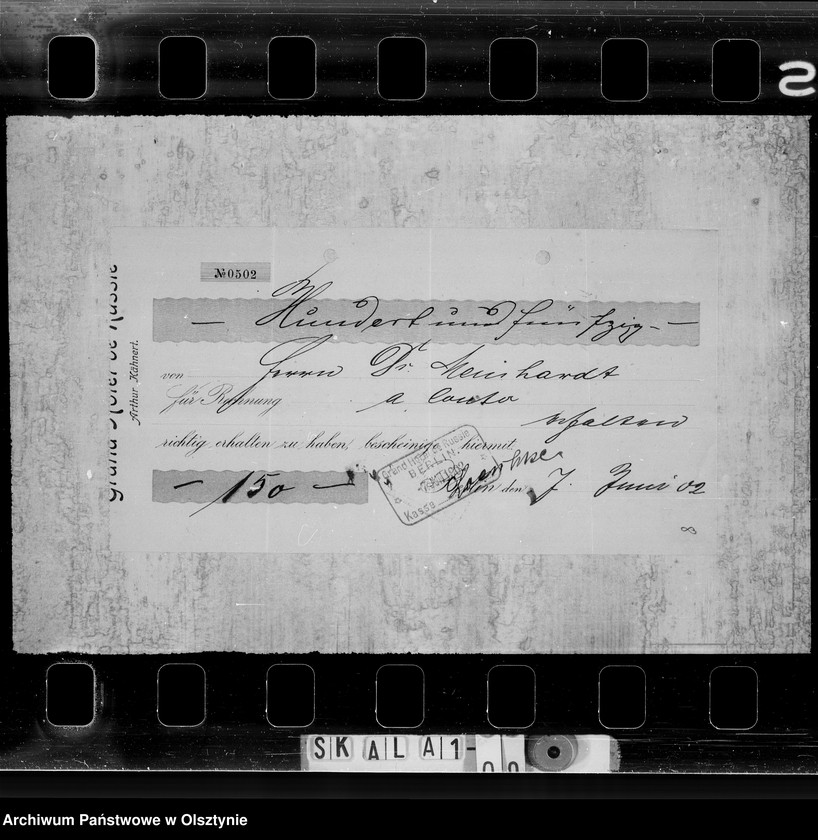 S
Grand Hotel de Russie
Arthur Kähnert.
№0502
— Hundert und fünfzig. —
von Herrn Dr. Meinhardt
für Rechnung a Conto
erhalten
richtig erhalten zu haben, bescheinige hiermit
— 150 —
Berlin den 7. Juni 02
Grand Hotel de Russie
BERLIN.
Kasse
SKALA 1-
Archiwum Państwowe w Olsztynie